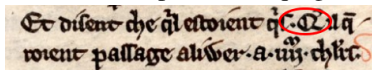 Et disent che ql̃ estoient q̃ .C. Q̃l q̃
roient passage aliuer · a · iiij · chlr̃ ·